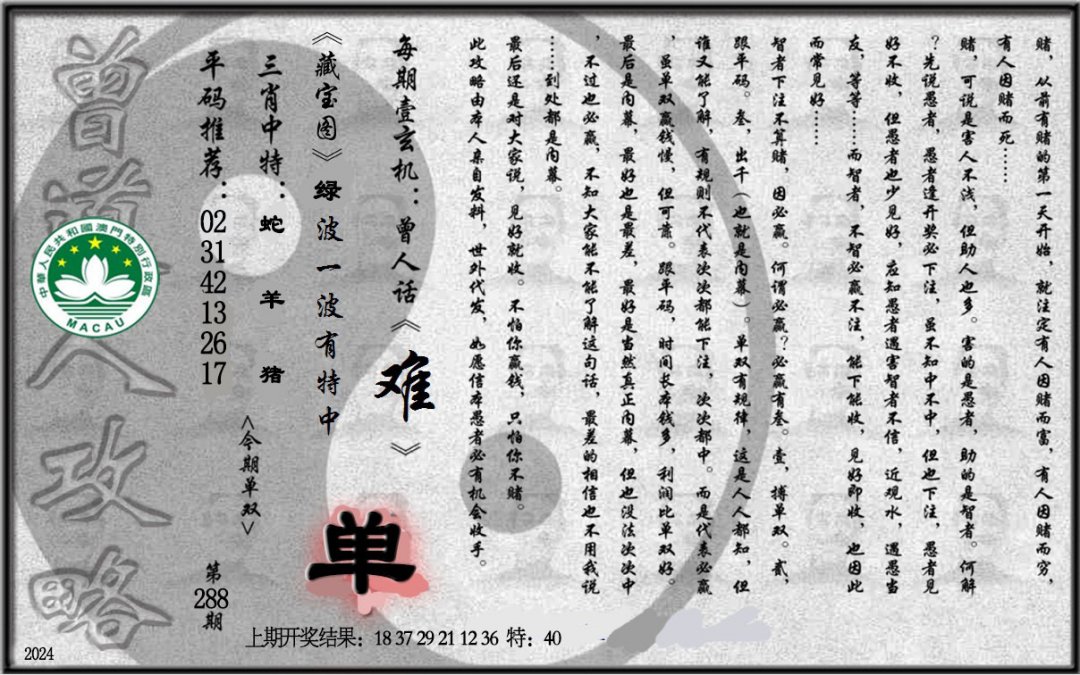 赌，从前有赌的第一天开始，就注定有人因赌而富，有人因赌而穷，
有人因赌而死……
赌，可说是害人不浅，但助人也多。害的是愚者，助的是智者。何解
？先说愚者，愚者逢开奖必下注，虽不知中不中，但也下注，愚者见
好不收，但愚者也少见好，应知愚者遇害智者不信，近观水，遇愚当
友，等等……而智者，不智必赢不注，能下能收，见好即收，也因此
而常见好……
智者下注不算赌，因必赢。何谓必赢？必赢有叁。壹，搏单双。贰，
跟平码。叁，出千（也就是内幕）。单双有规律，这是人人都知，但
谁又能了解，有规则不代表次次都能下注，次次都中。而是代表必赢
，虽单双赢钱慢，但可靠。跟平码，时间长本钱多，利润比单双好。
最后是内幕，最好也是最差，最好是当然真正内幕，但也没法次次中
，不过也必赢，不知大家能不能了解这句话，最差的相信也不用我说
……到处都是内幕。
最后还是对大家说，见好就收。不怕你赢钱，只怕你不赌。
此攻略由本人亲自发料，世外代发，如愿信本愚者必有机会收手。
每期壹玄机：曾人话《难》
《藏宝图》绿波一波有特中
单
三肖中特：蛇 羊 猪
<今期单双>
平码推荐：02 31 42 13 26 17
第288期
曾道人攻略
中華人民共和國澳門特別行政區
MACAU
上期开奖结果：18 37 29 21 12 36 特：40
2024